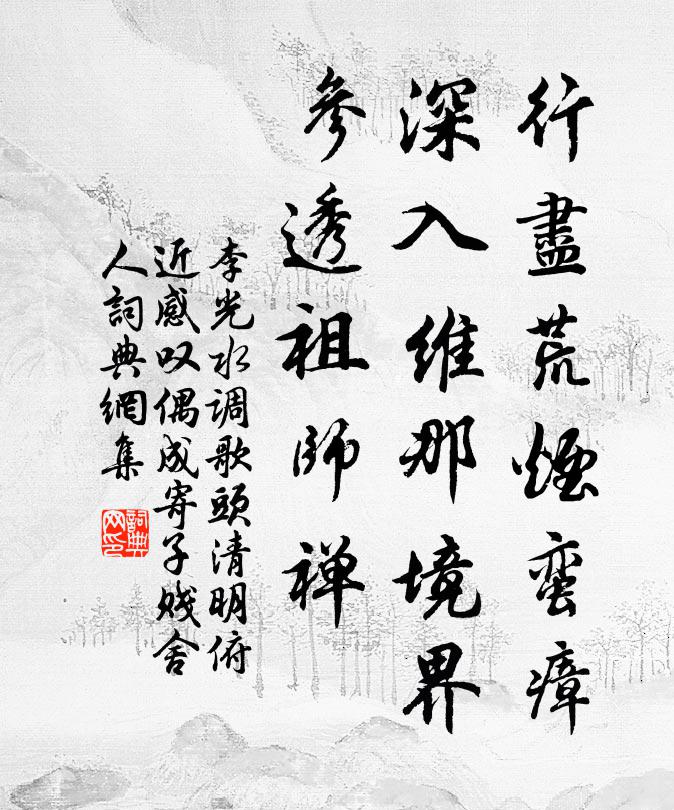 行盡荒煙蛮瘴
深入維那境界
參透祖师禅
李光水调歌頭清明俯
近感叹偶成寄子贱舍
人詞典網集
詞典
网印